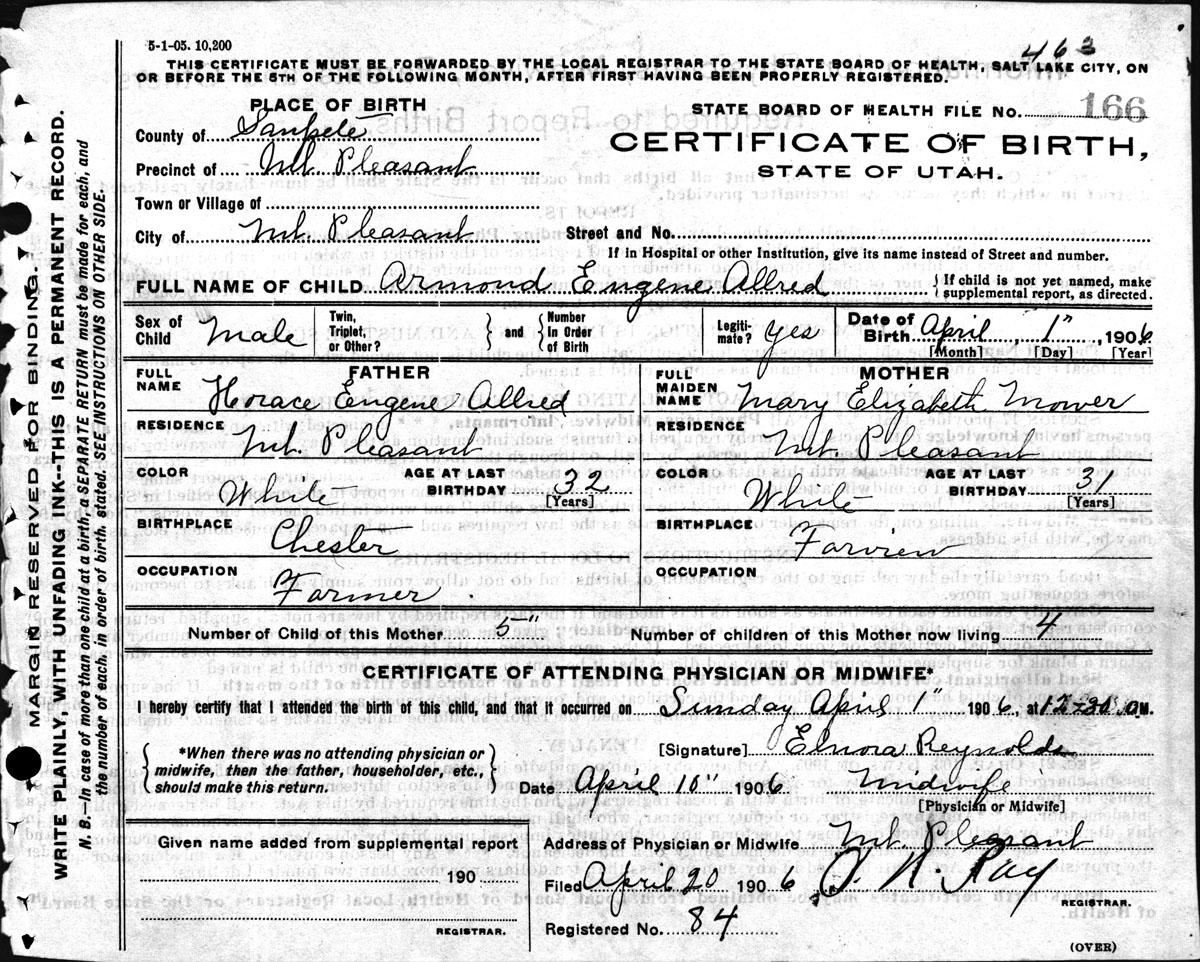 5-1-05. 10,200
463
THIS CERTIFICATE MUST BE FORWARDED BY THE LOCAL REGISTRAR TO THE STATE BOARD OF HEALTH, SALT LAKE CITY, ON
OR BEFORE THE 5TH OF THE FOLLOWING MONTH, AFTER FIRST HAVING BEEN PROPERLY REGISTERED.
PLACE OF BIRTH
STATE BOARD OF HEALTH FILE No. 166
County of Sanpete
CERTIFICATE OF BIRTH,
Precinct of Mt. Pleasant
STATE OF UTAH.
Town or Village of
City of Mt. Pleasant Street and No.
If in Hospital or other Institution, give its name instead of Street and number.
FULL NAME OF CHILD Armond Eugene Allred { If child is not yet named, make supplemental report, as directed.
Sex of Child Male Twin, Triplet, or Other? } and { Number In Order of Birth Legiti- mate? Yes Date of Birth April 1", 1906
[Month] [Day] [Year]
FATHER
MOTHER
FULL NAME Horace Eugene Allred
FULL MAIDEN NAME Mary Elizabeth Mower
RESIDENCE Mt. Pleasant
RESIDENCE Mt. Pleasant
COLOR White AGE AT LAST BIRTHDAY 32 [Years]
COLOR White AGE AT LAST BIRTHDAY 31 [Years]
BIRTHPLACE Chester
BIRTHPLACE Farview
OCCUPATION Farmer.
OCCUPATION
Number of Child of this Mother 5" Number of children of this Mother now living 4
CERTIFICATE OF ATTENDING PHYSICIAN OR MIDWIFE*
I hereby certify that I attended the birth of this child, and that it occurred on Sunday April 1" 1906, at 12-30 M.
{ *When there was no attending physician or midwife, then the father, householder, etc., should make this return. }
[Signature] Elnora Reynolds
Date April 10" 1906 Midwife
[Physician or Midwife]
Given name added from supplemental report
190
REGISTRAR.
Address of Physician or Midwife Mt. Pleasant
Filed April 20 1906 Ray
REGISTRAR.
Registered No. 84
(OVER)
MARGIN RESERVED FOR BINDING.
WRITE PLAINLY, WITH UNFADING INK--THIS IS A PERMANENT RECORD.
N. B.--In case of more than one child at a birth, a SEPARATE RETURN must be made for each, and
the number of each, in order of birth, stated. SEE INSTRUCTIONS ON OTHER SIDE.